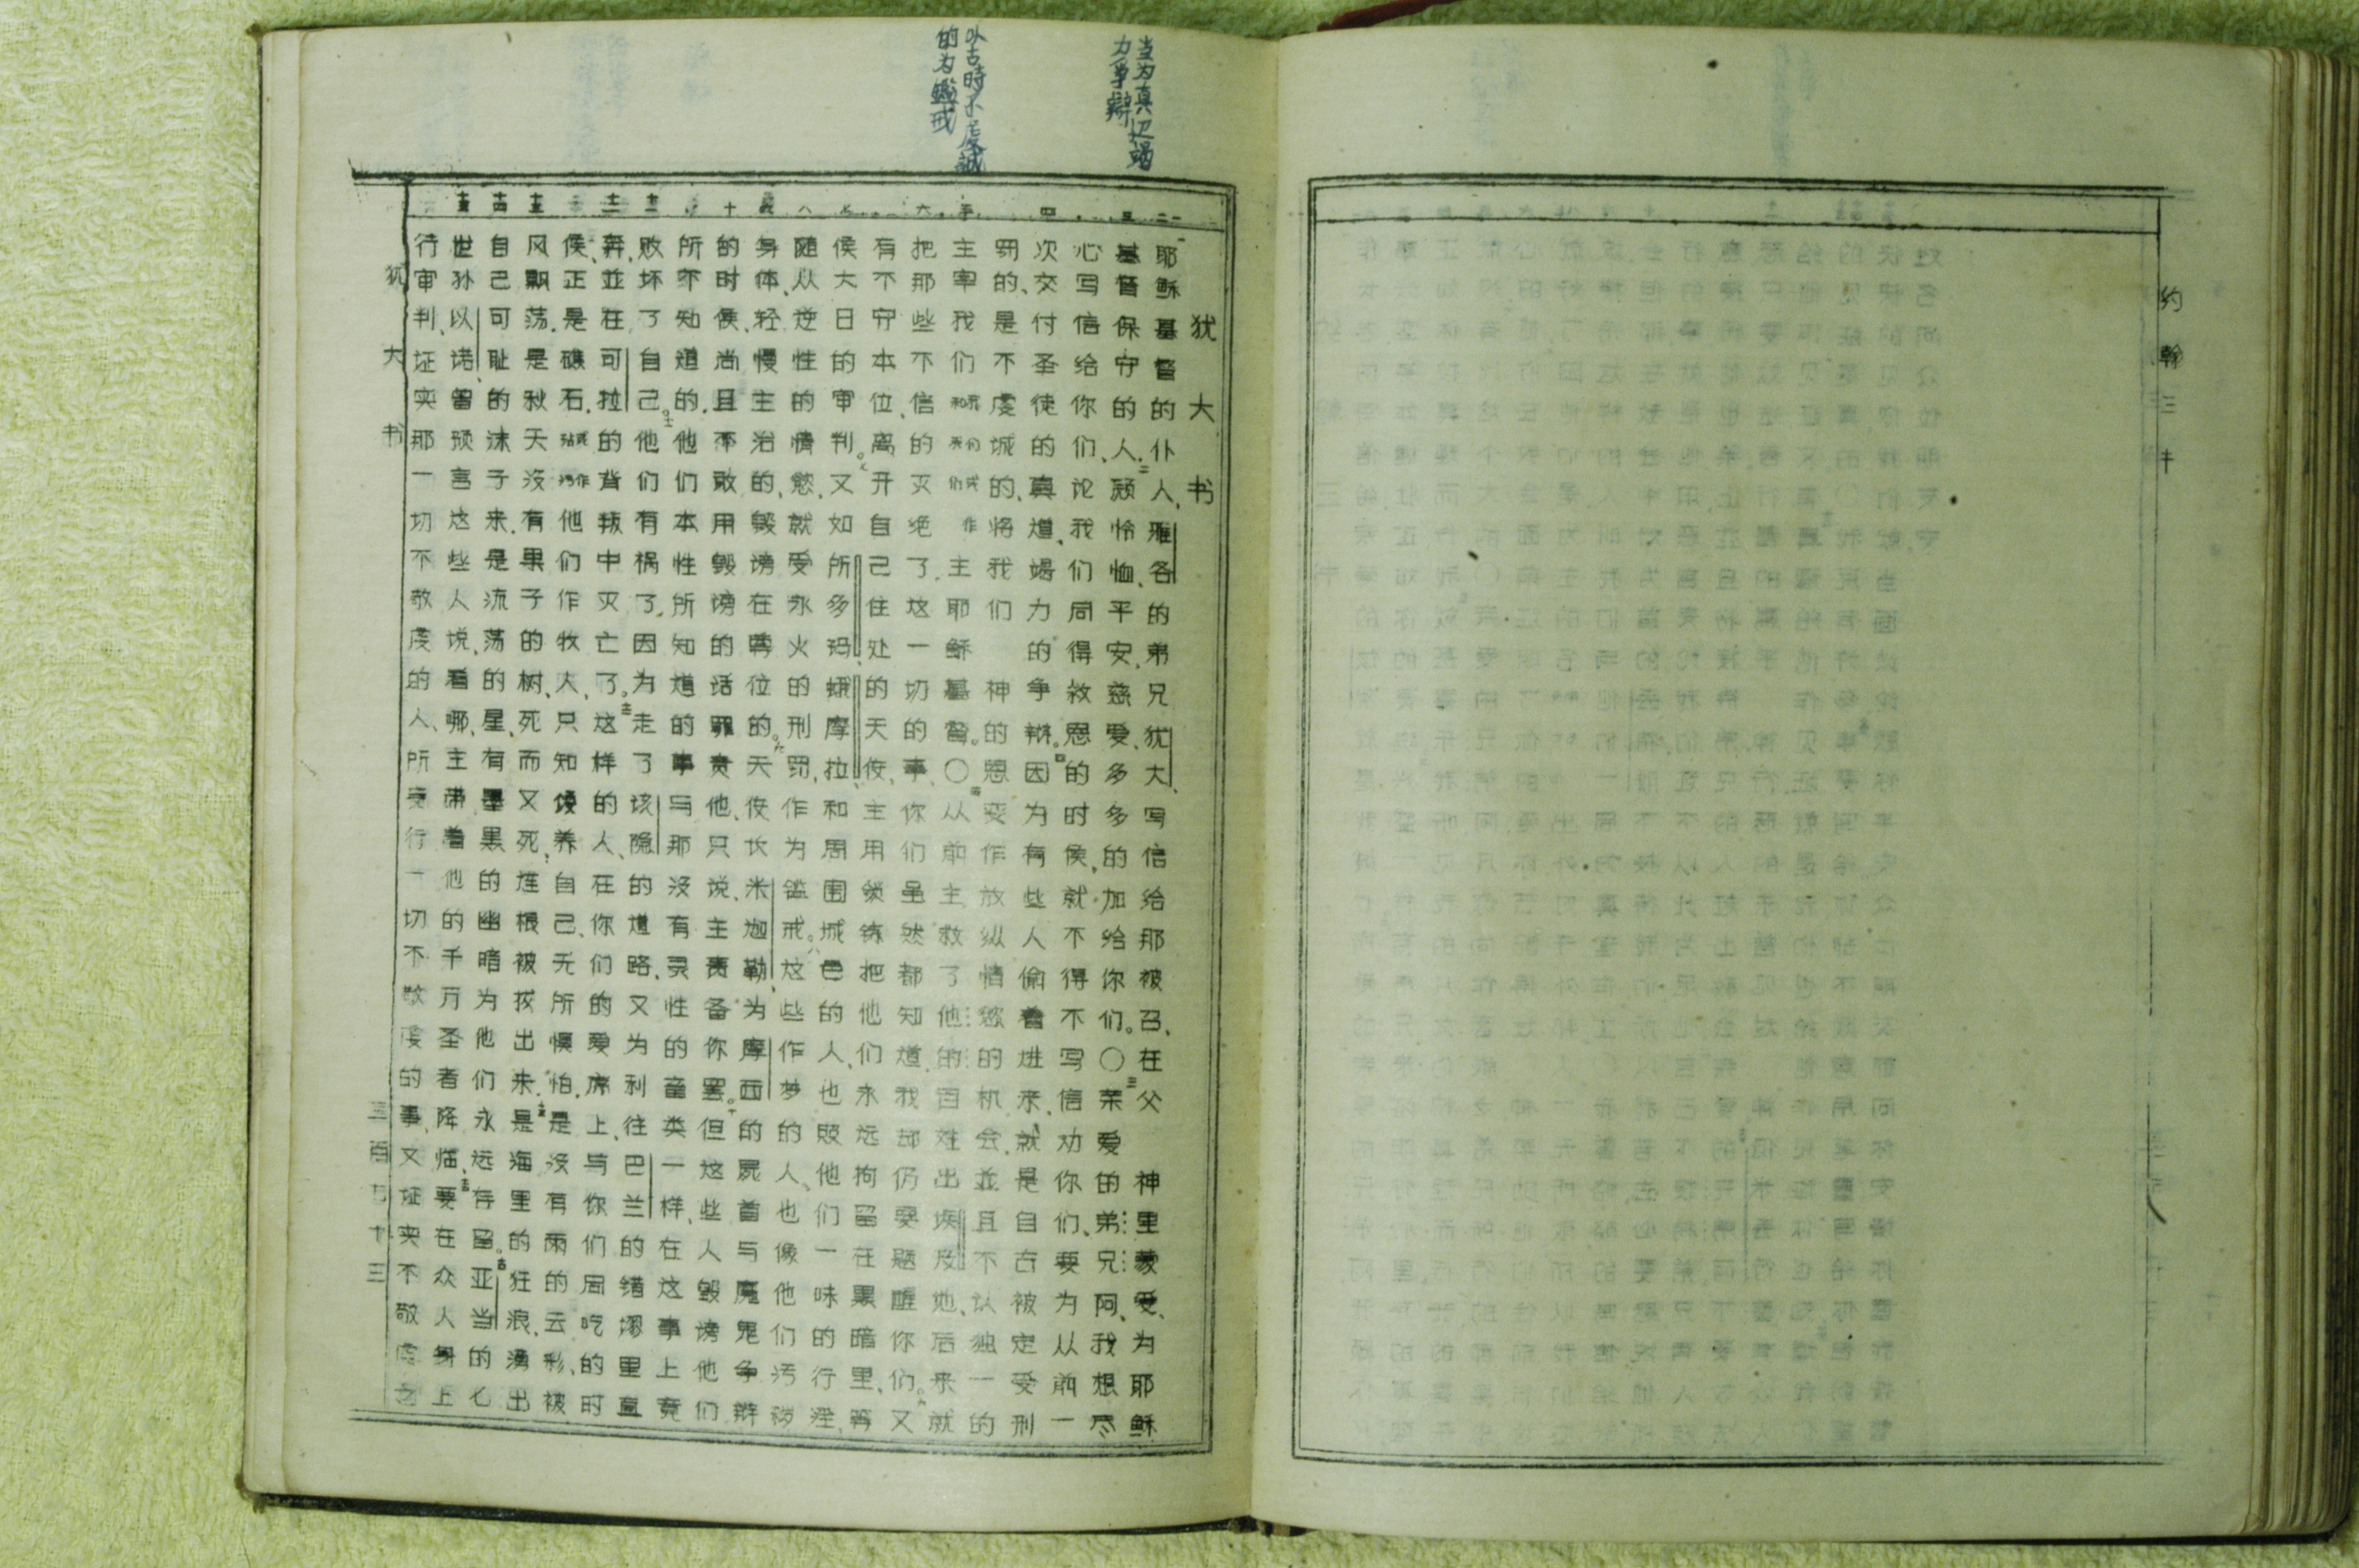 约翰三书
当为真道竭
力争辩
以古時不虔誠
的为鑑戒
犹大书
耶稣基督的仆人、雅各的弟兄犹大、写信给那被召、在父 神里蒙爱、为耶稣
基督保守的人.二愿怜恤、平安、慈爱、多多的加给你们。〇三亲爱的弟兄阿、我想尽
心写信给你们、论我们同得救恩的时候、就不得不写信劝你们、要为从前一
次交付圣徒的真道、竭力的争辩。四因为有些人偷着进来、就是自古被定受刑
罚的、是不虔诚的、将我们 神的恩变作放纵情慾的机会、並且不认独一的
主宰我们主耶稣基督。〇五从前主救了他的百姓出埃及地、后来就
把那些不信的灭绝了.这一切的事、你们虽然都知道、我却仍要题醒你们。六又
有不守本位、离开自己住处的天使、主用锁鍊把他们永远拘留在黑暗里、等
候大日的审判。七又如所多玛、蛾摩拉、和周围城邑的人、也照他们一味的行淫、
随从逆性的情慾、就受永火的刑罚、作为鉴戒。八这些作梦的人、也像他们污秽
身体、轻慢主治的、毁谤在尊位的。九天使长米迦勒、为摩西的屍首与魔鬼争辩
的时候、尚且不敢用毁谤的话罪责他、只说、主责备你罢。十但这些人毁谤他们
所不知道的.他们本性所知道的事与那没有灵性的畜类一样、在这事上竟
败坏了自己。十一他们有祸了.因为走了该隐的道路、又为利往巴兰的错谬里直
奔、並在可拉的背叛中灭亡了。十二这样的人、在你们的爱席上、与你们吃的时
候、正是礁石.他们作牧人、只知喂养自己、无所惧怕.是没有雨的云彩、被
风飘荡.是秋天没有果子的树、死而又死、连根被拔出来.十三是海里的狂浪、涌出
自己可耻的沫子来.是流荡的星、有墨黑的幽暗为他们永远存留。十四亚当的七
世孙以诺、预言这些人说、看哪、主带着他的千万圣者降临、十五要在众人身上
行审判、证实那一切不敬虔的人、所妄行一切不敬虔的事、又证实不敬虔之
犹大书 三百七十三